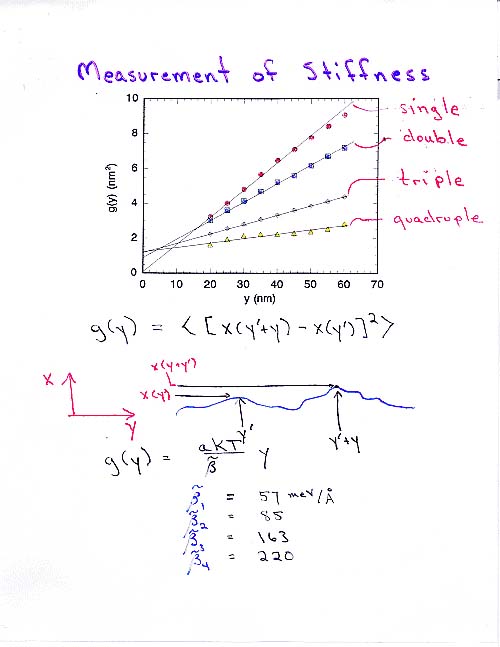 Measurement of Stiffness
10
8
6
4
2
0
g(y) (nm²)
0 10 20 30 40 50 60 70
y (nm)
single
double
triple
quadruple
g(y) = < [x(y'+y) - x(y')]² >
x(y+y')
x(y')
X
Y
y'
y'+y
g(y) = aKT/β̃ y
β̃₁ = 57 meV/Å
β̃₂ = 85
β̃₃ = 163
β̃₄ = 220